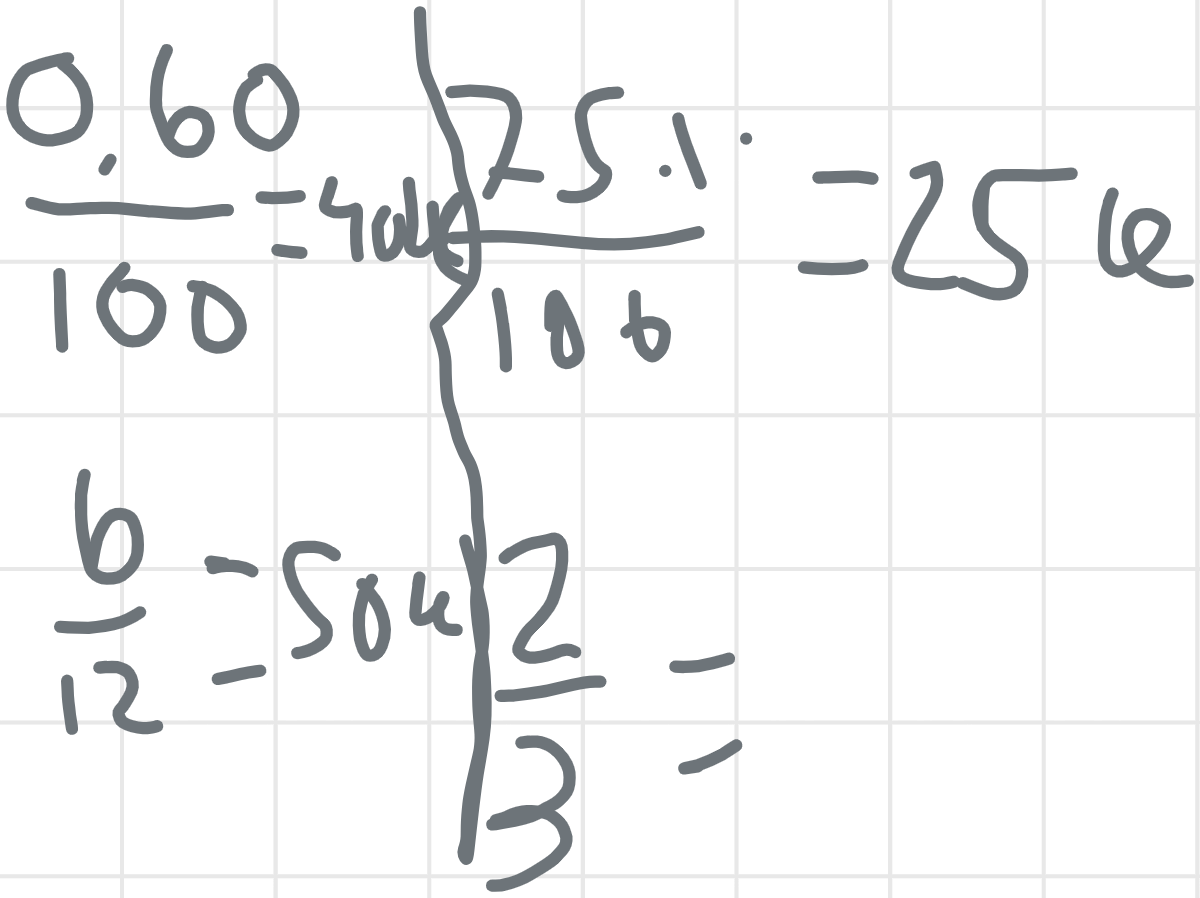 0.60
100
=
25.1
100
= 25
6
12
= 50
2
3
=